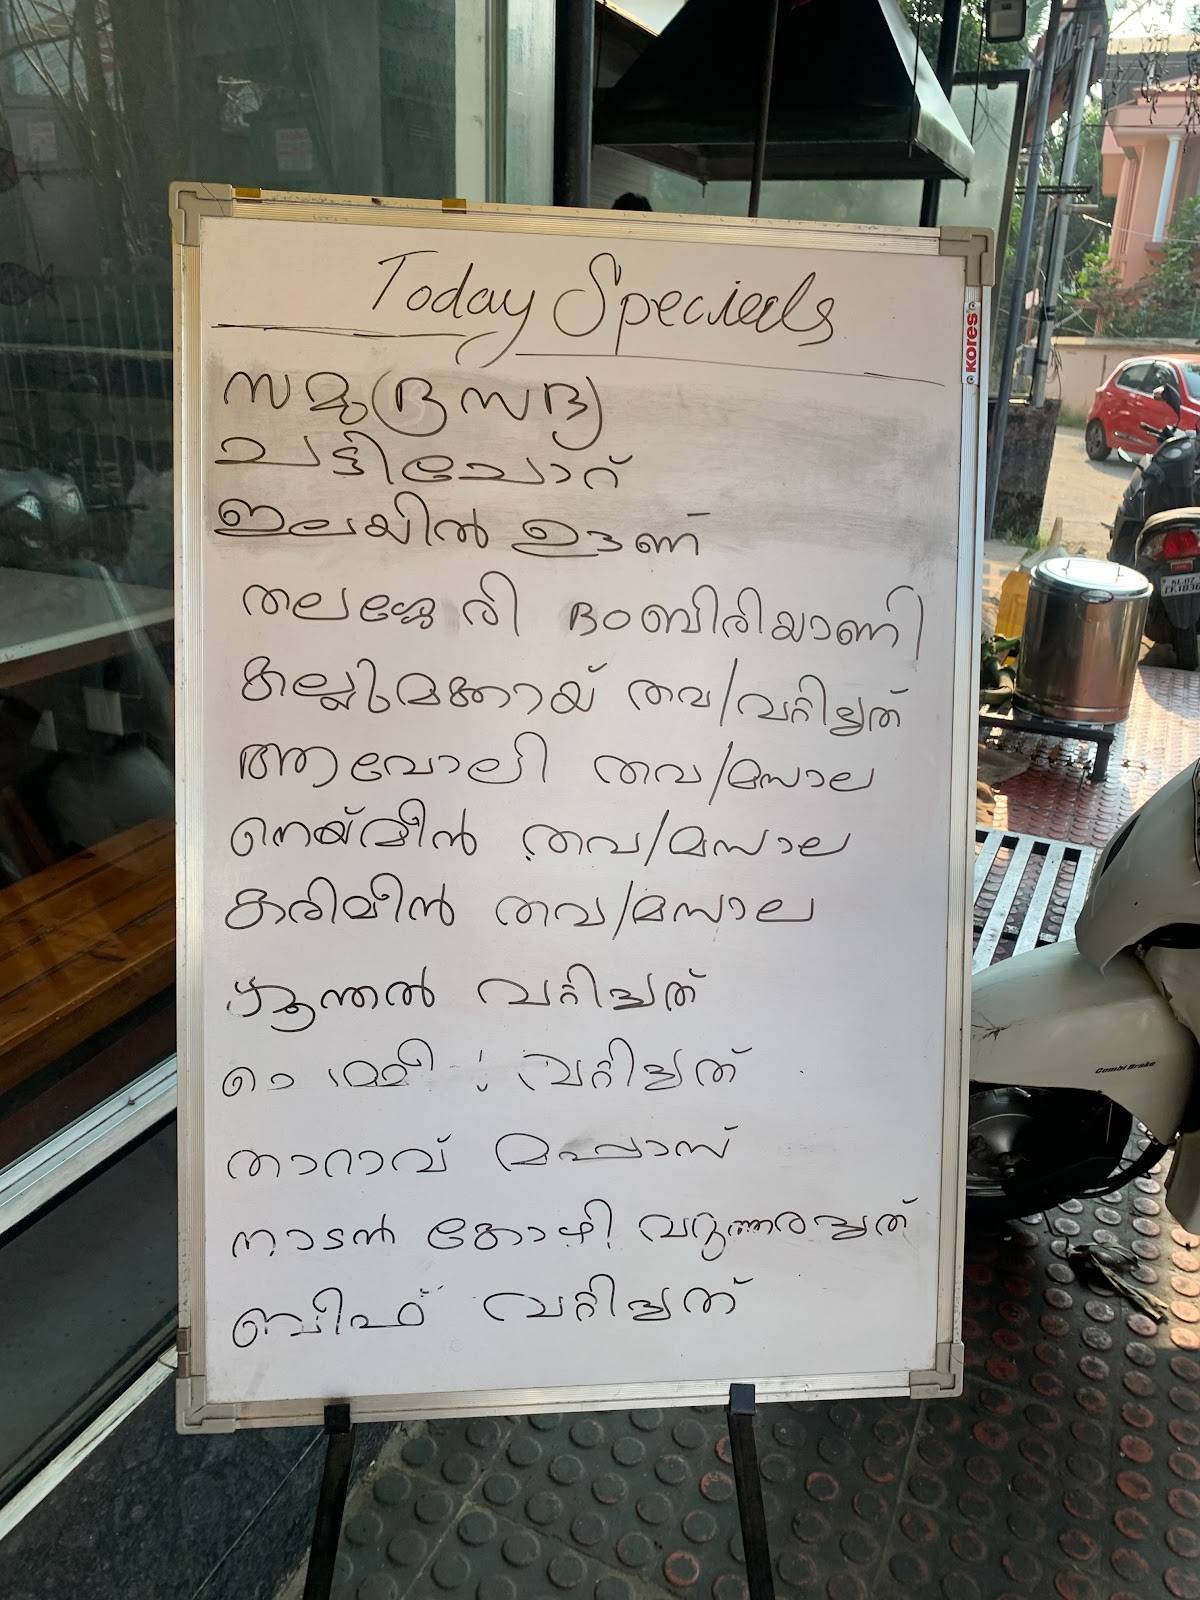 Today Specials
KORES
സമുദ്രസദ്യ
ചട്ടിചോറ്
ഇലയിൽ ഊണ്
തലശ്ശേരി ദംബിരിയാണി
കല്ലുമക്കായ് തവ/വറ്റിച്ചത്
ആവോലി തവ/മസാല
നെയ്മീൻ തവ/മസാല
കരിമീൻ തവ/മസാല
കൂന്തൽ വറ്റിച്ചത്
വറ്റിച്ചത്
താറാവ് മപ്പാസ്
നാടൻ കോഴി വറുത്തരച്ചത്
ബീഫ് വറ്റിച്ചത്
Combi Brake